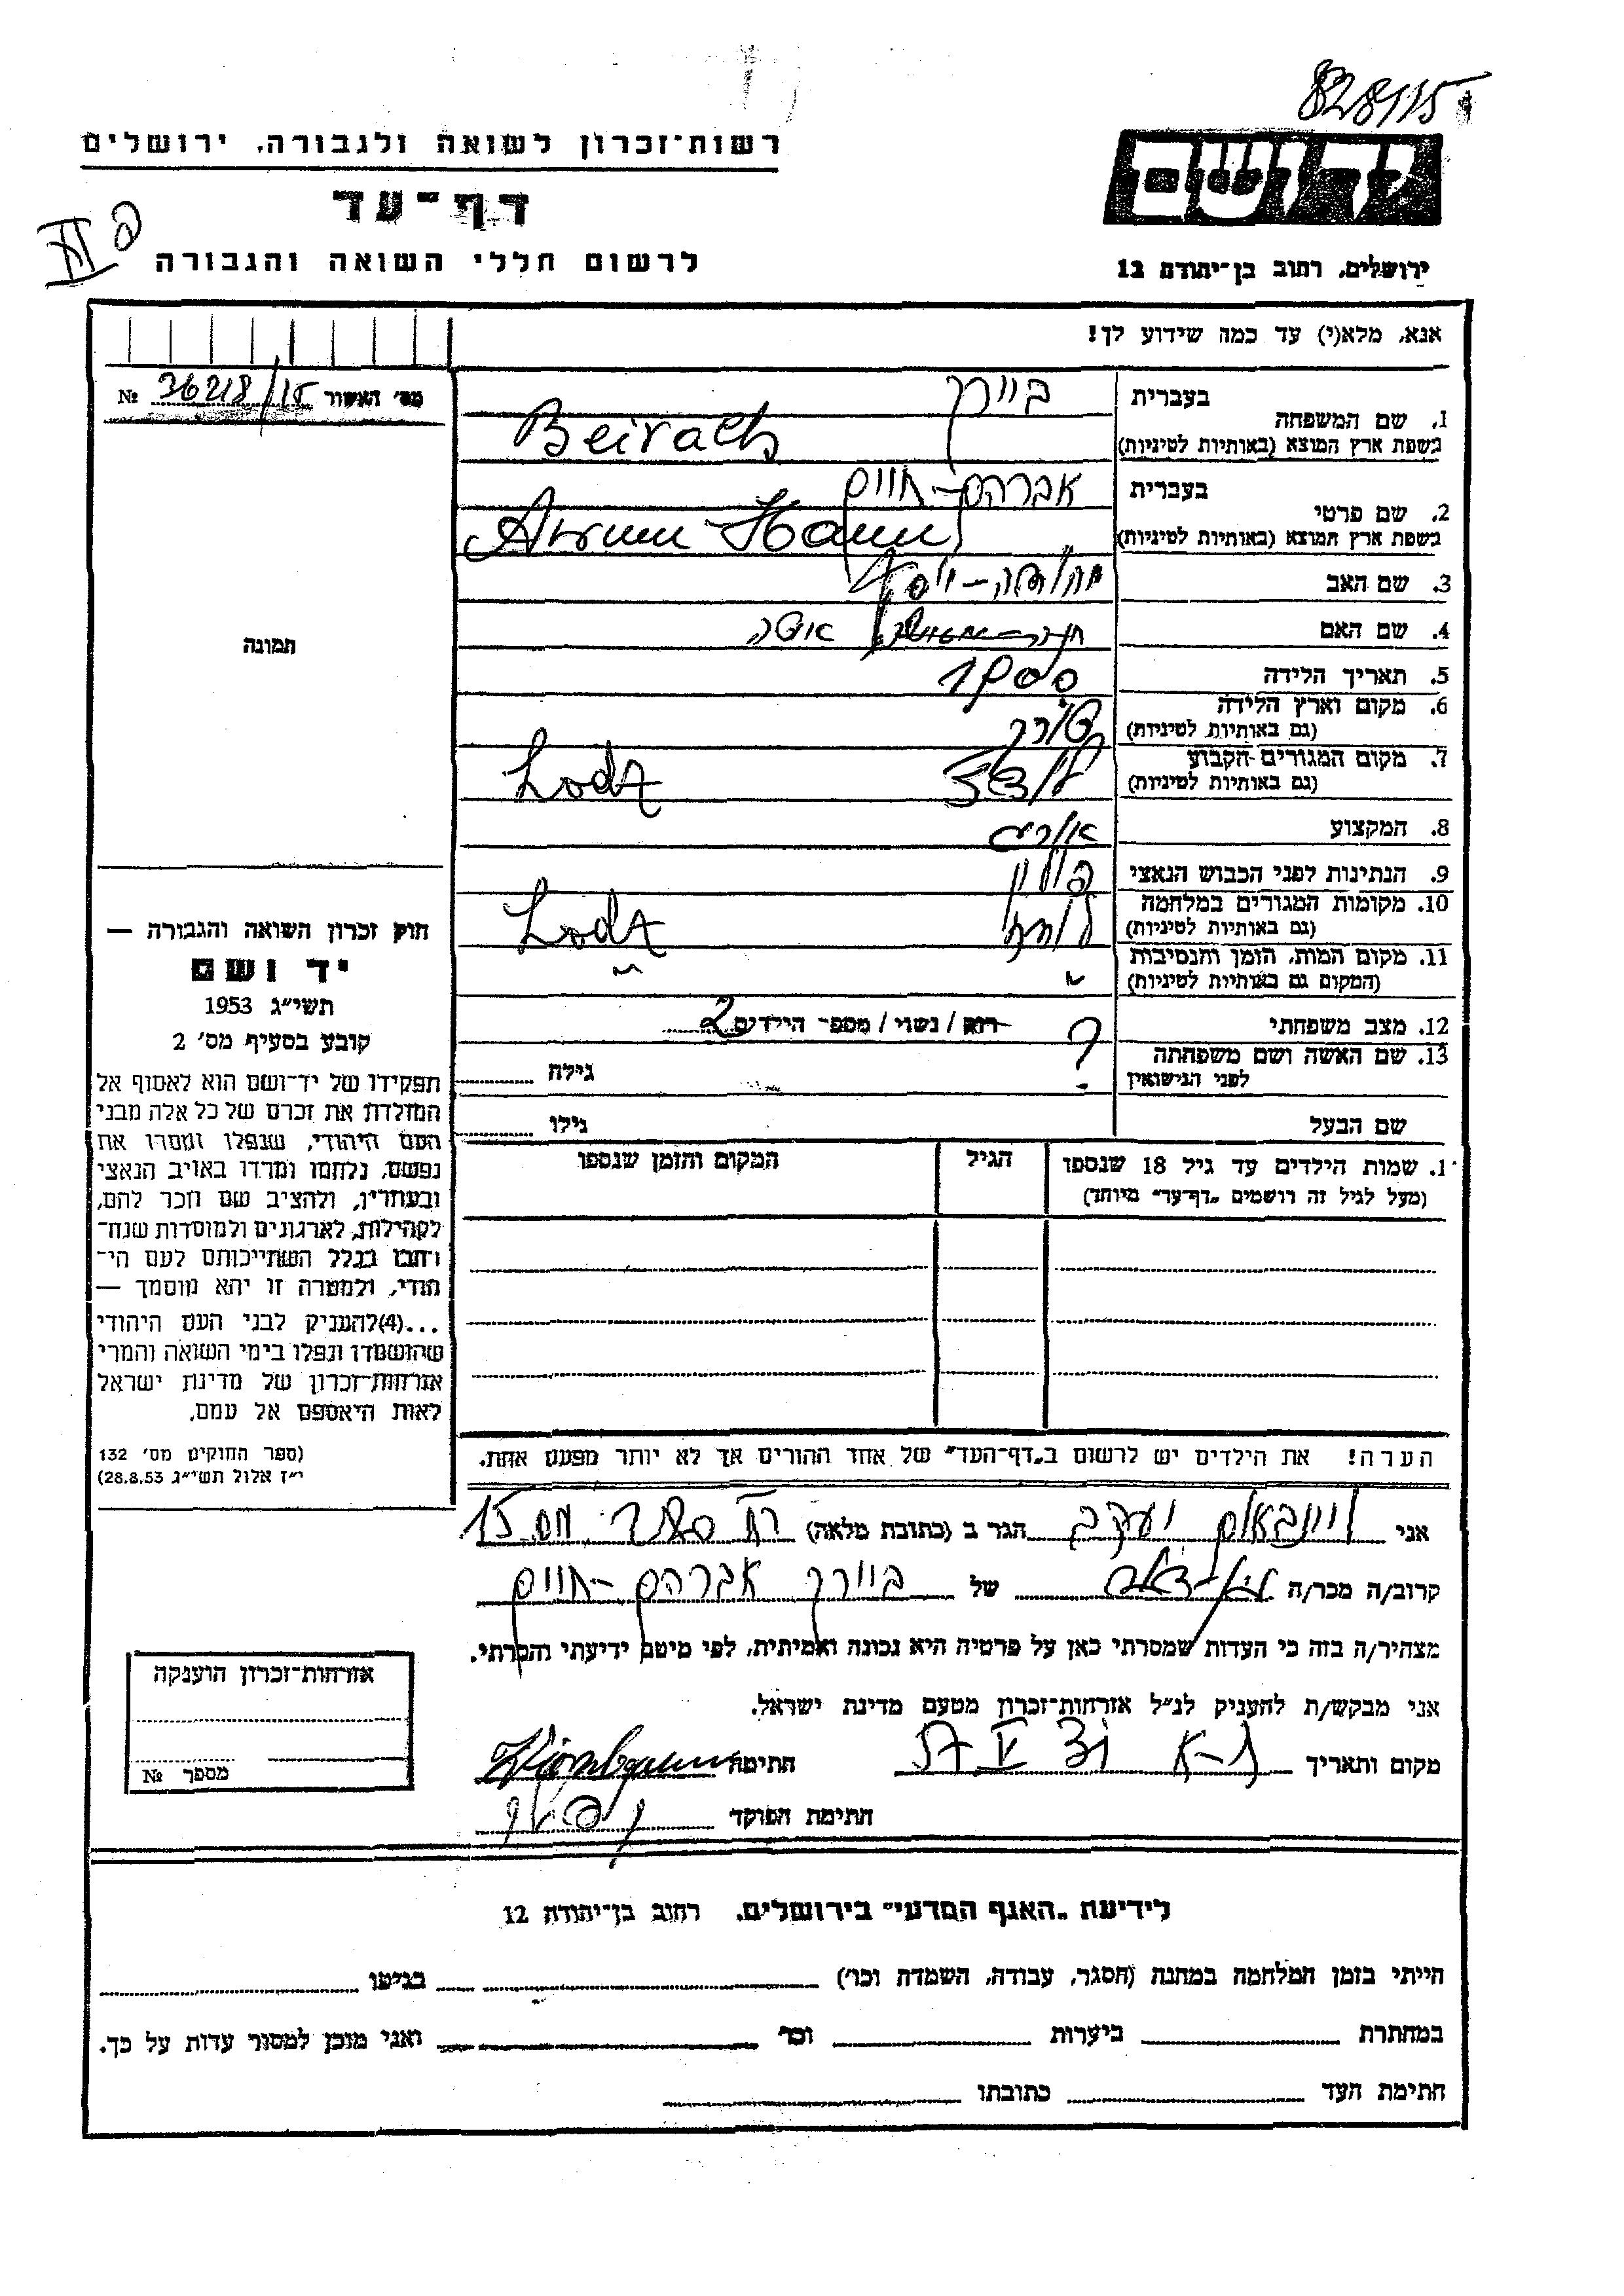 828/15
רשות־זכרון לשואה ולגבורה, ירושלים
יד ושם
דף־עד
לרשום חללי השואה והגבורה
ירושלים, רחוב בן־יהודה 12
אנא, מלא(י) עד כמה שידוע לך!
מס׳ האשור 36218/15 №
בעברית ביירך
1. שם המשפחה
בשפת ארץ המוצא (באותיות לטיניות) Beirach
בעברית אברהם-חיים
2. שם פרטי
בשפת ארץ המוצא (באותיות לטיניות)
3. שם האב
4. שם האם
5. תאריך הלידה 1900
6. מקום וארץ הלידה
(גם באותיות לטיניות)
7. מקום המגורים הקבוע לודז
(גם באותיות לטיניות) Lodz
8. המקצוע
9. הנתינות לפני הכבוש הנאצי פולין
10. מקומות המגורים במלחמה
(גם באותיות לטיניות) Lodz
11. מקום המות, הזמן והנסיבות
(המקום גם באותיות לטיניות)
12. מצב משפחתי רוק / נשוי / מספר הילדים 2
13. שם האשה ושם משפחתה ? גילה
לפני הנישואין
שם הבעל גילו
1. שמות הילדים עד גיל 18 שנספו הגיל המקום והזמן שנספו
(מעל לגיל זה רושמים „דף־עד״ מיוחד)
הערה! את הילדים יש לרשום ב„דף־העד״ של אחד ההורים אך לא יותר מפעם אחת.
תמונה
חוק זכרון השואה והגבורה —
יד ושם
תשי״ג 1953
קובע בסעיף מס׳ 2
תפקידו של יד־ושם הוא לאסוף אל
המולדת את זכרם של כל אלה מבני
העם היהודי, שנפלו ומסרו את
נפשם, נלחמו ומרדו באויב הנאצי
ובעוזריו, ולהציב שם וזכר להם,
לקהילות, לארגונים ולמוסדות שנח־
רבו בגלל השתייכותם לעם הי־
הודי, ולמטרה זו יהא מוסמך —
...(4)להעניק לבני העם היהודי
שהושמדו ונפלו בימי השואה והמרי
אזרחות־זכרון של מדינת ישראל
לאות היאספם אל עמם.
(ספר החוקים מס׳ 132
י״ז אלול תשי״ג 28.8.53)
אני ויינבאום יעקב הגר ב (כתובת מלאה) 15
קרוב/ה מכר/ה של ביירך אברהם-חיים
מצהיר/ה בזה כי העדות שמסרתי כאן על פרטיה היא נכונה ואמיתית, לפי מיטב ידיעתי והכרתי.
אני מבקש/ת להעניק לנ״ל אזרחות־זכרון מטעם מדינת ישראל.
מקום ותאריך ת-א 31 V 57 חתימה
חתימת הפוקד
אזרחות־זכרון הוענקה
מספר №
לידיעת „האגף המדעי״ בירושלים, רחוב בן־יהודה 12
הייתי בזמן המלחמה במחנה (הסגר, עבודה, השמדה וכו׳) בגיטו
במחתרת ביערות וכו׳ ואני מוכן למסור עדות על כך.
חתימת העד כתובתו